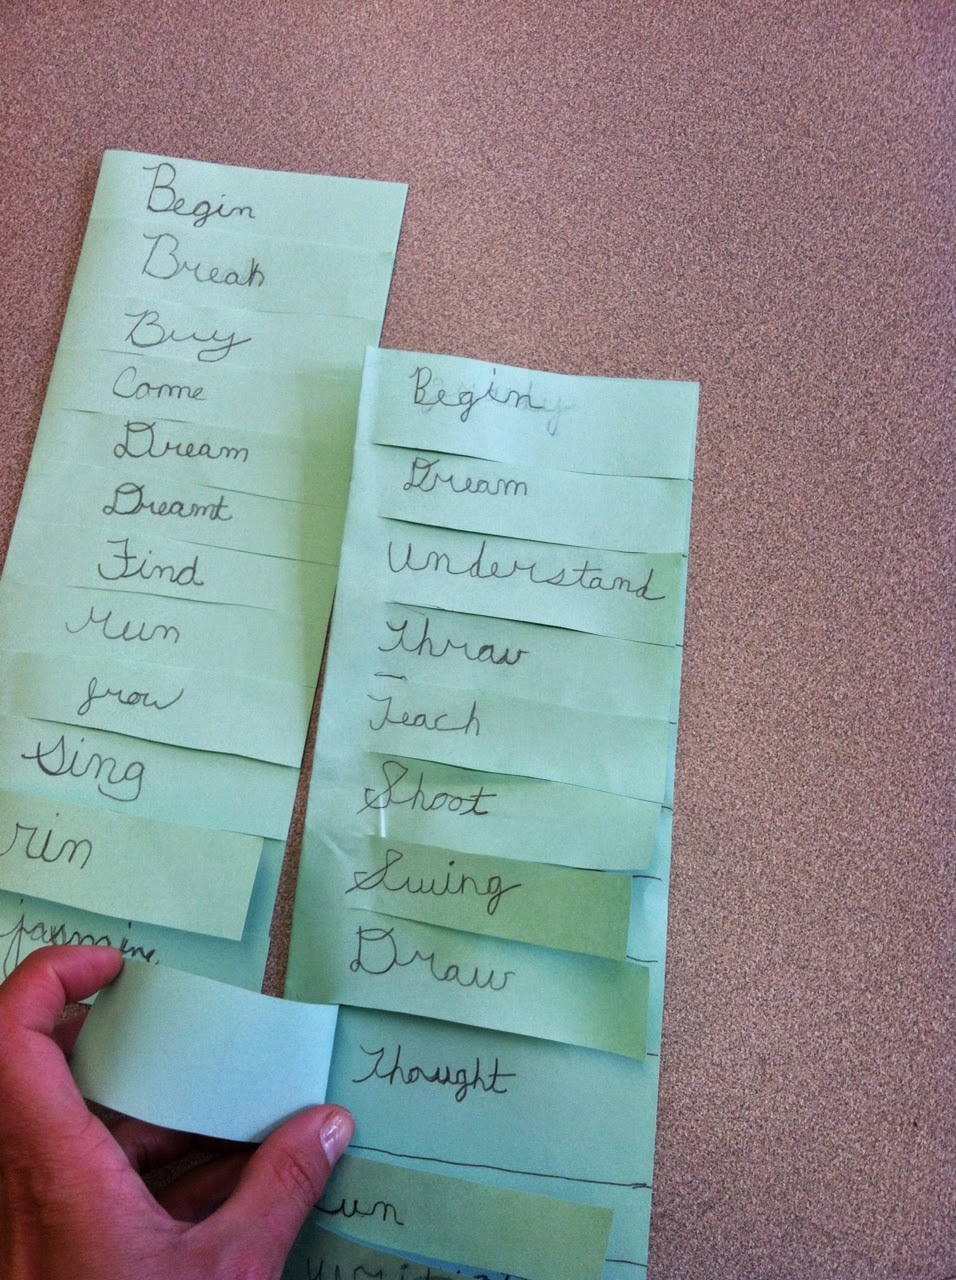 Begin
Break
Buy
Come
Dream
Dreamt
Find
run
grow
Sing
run
jasmine
Begin
Dream
understand
thraw
Teach
Shoot
Swing
Draw
Thought
un